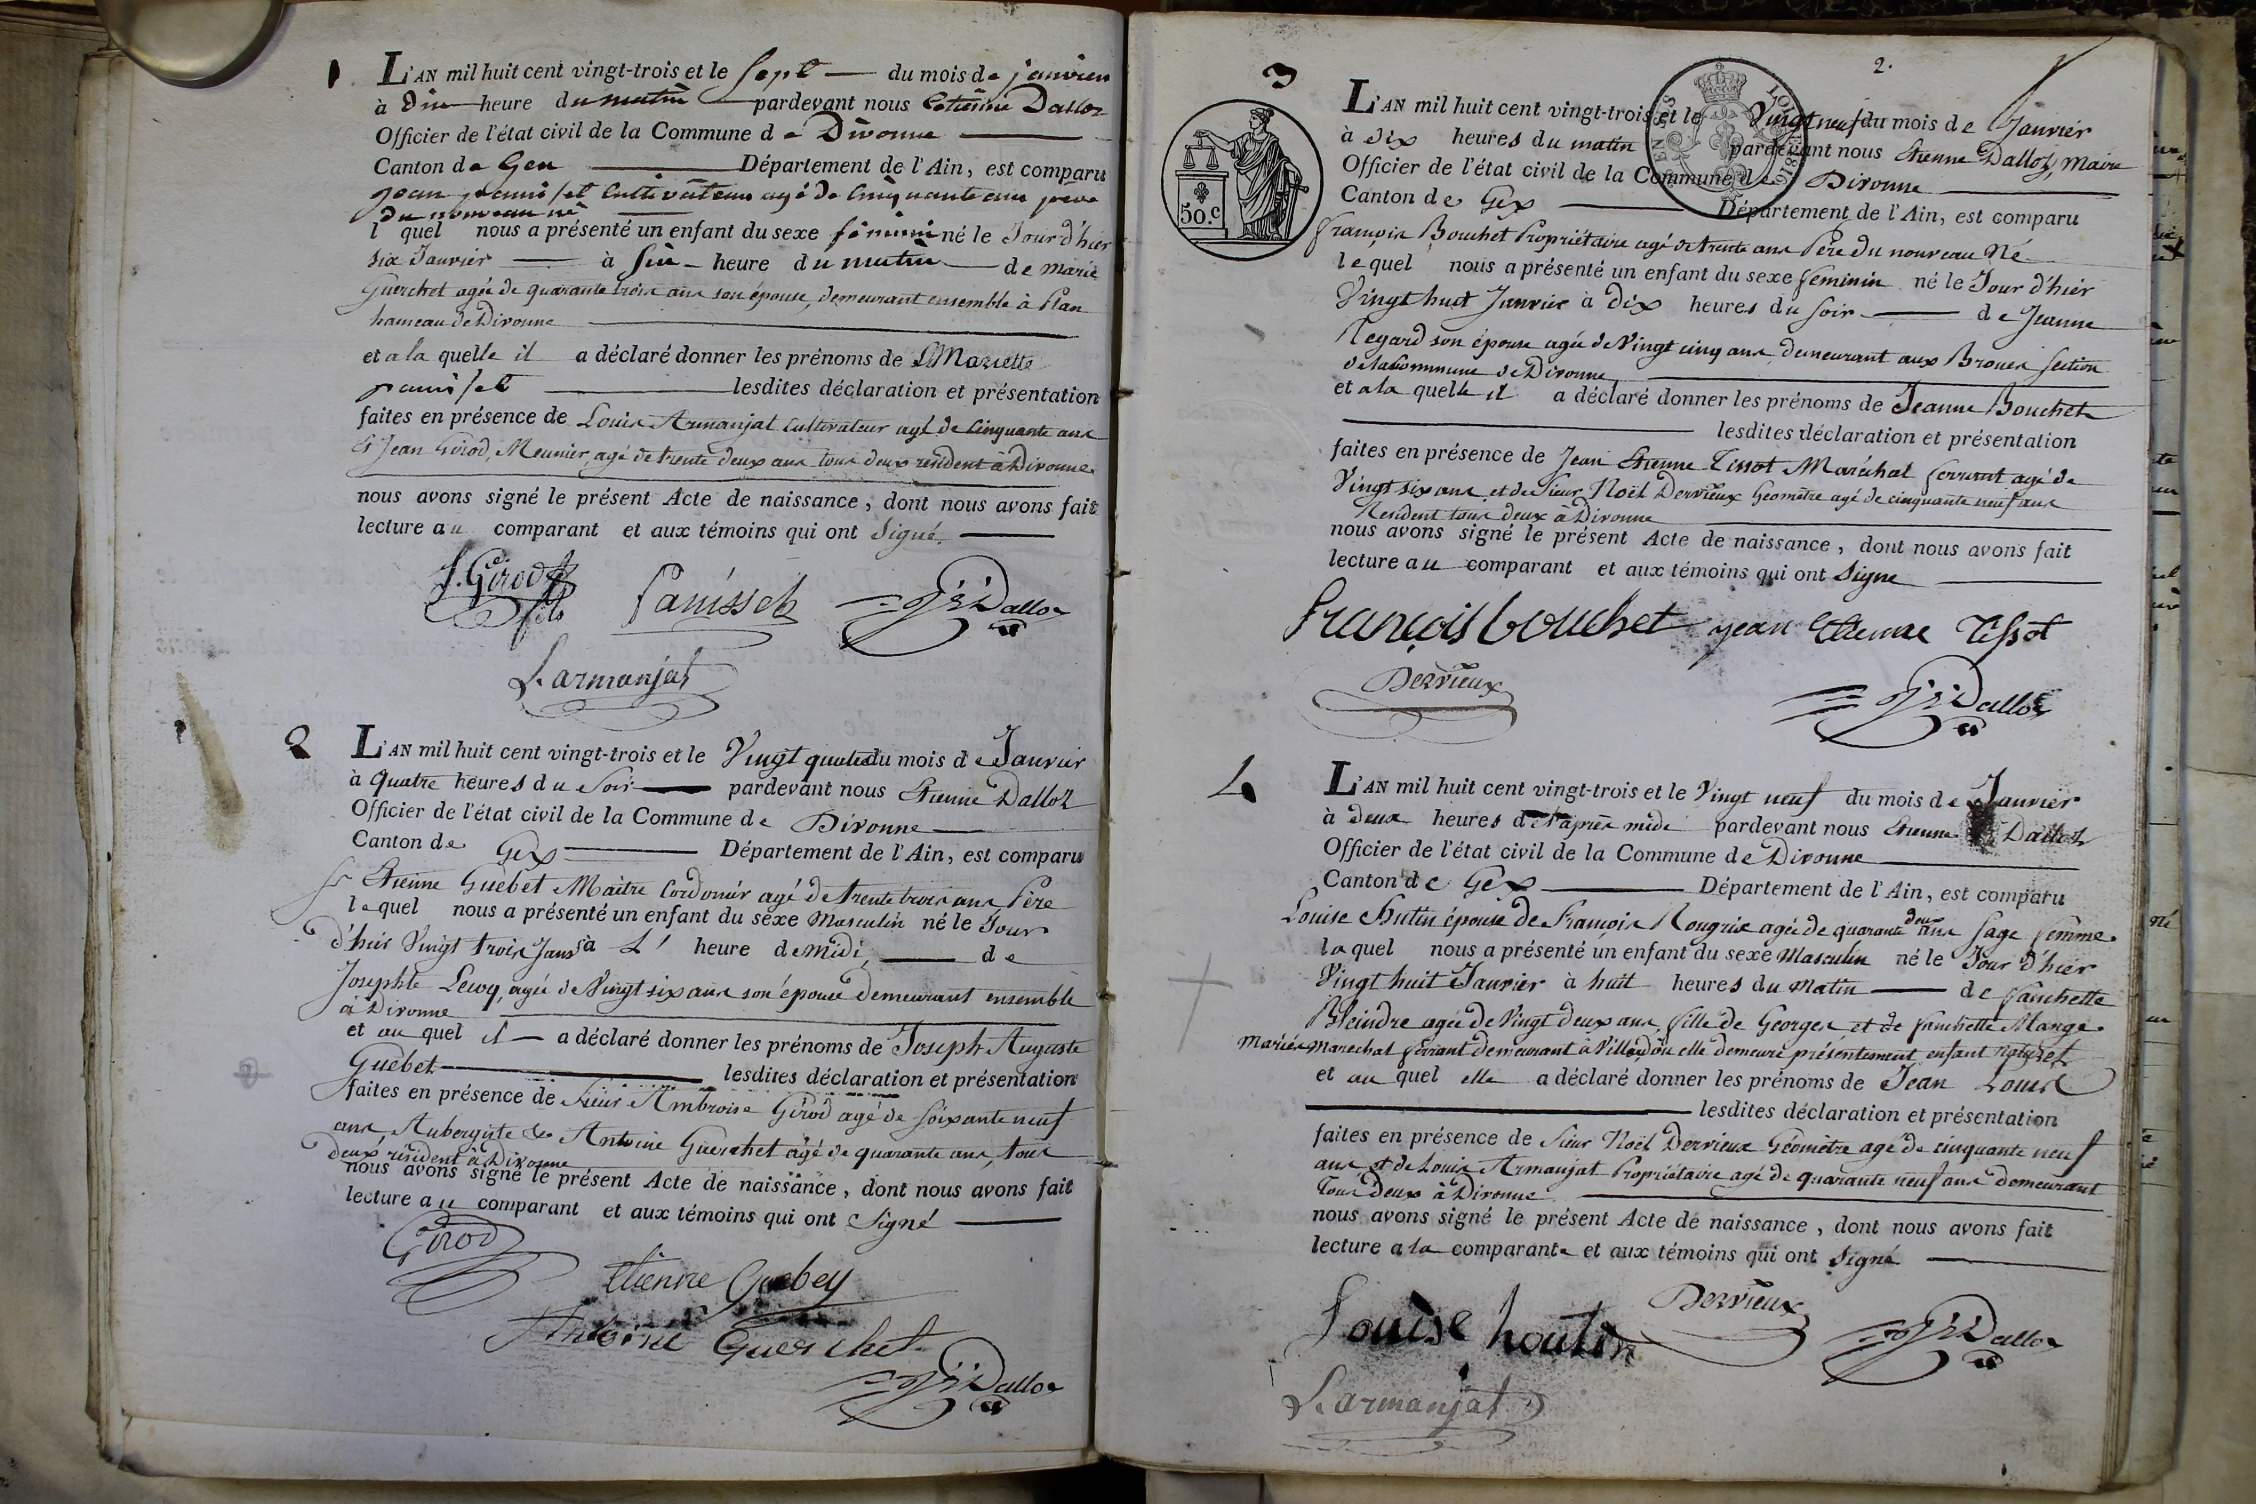 1
L'AN mil huit cent vingt-trois et le Sept du mois de janvier
à dix heure du matin pardevant nous Etienne Dalloz
Officier de l'état civil de la Commune de Divonne
Canton de Gex Département de l'Ain, est comparu
jean panisset Cultivateur agé de Cinquante ans pere
du nouveau né
lequel nous a présenté un enfant du sexe féminin né le Jour d'hier
six Janvier à six heure du matin de marie
Guerchet agée de quarante trois ans son épouse, demeurant ensemble à Plan
hameau de Divonne
et a la quelle il a déclaré donner les prénoms de Mariette
panisset lesdites déclaration et présentation
faites en présence de Louis Armanjat Cultivateur agé de Cinquante ans
Et Jean Girod, Meunier, agé de trente deux ans tous deux résident à Divonne
nous avons signé le présent Acte de naissance, dont nous avons fait
lecture au comparant et aux témoins qui ont Signé.
J. Girod fils Panisset Dalloz
L. armanjat
2
L'AN mil huit cent vingt-trois et le Vingt quatre du mois de Janvier
à quatre heures du Soir pardevant nous Etienne Dalloz
Officier de l'état civil de la Commune de Divonne
Canton de Gex Département de l'Ain, est comparu
Sr Etienne Guèbet Maitre Cordonnir agé de trente trois ans Père
lequel nous a présenté un enfant du sexe Masculin né le Jour
d'hier Vingt trois Janvr à L' heure de Midi, de
Josephte Lecoq, agée de Vingt six ans son épouse demeurant ensemble
à Divonne
et au quel il a déclaré donner les prénoms de Joseph Auguste
Guèbet lesdites déclaration et présentation
faites en présence de Sieur Ambroise Girod agé de Soixante neuf
ans, Aubergiste & Antoine Guerchet agé de quarante ans, tous
deux résident à Divonne
nous avons signé le présent Acte de naissance, dont nous avons fait
lecture au comparant et aux témoins qui ont Signé
Girod
Etienne Guebey
Antoine Guerchet
Dalloz
2.
3
50.c
L'AN mil huit cent vingt-trois et le Vingt neuf du mois de Janvier
à dix heures du matin pardevant nous Etienne Dalloz, Maire
Officier de l'état civil de la Commune de Divonne
Canton de Gex Département de l'Ain, est comparu
François Bouchet Propriétaire agé de trente ans Père du nouveau Né
lequel nous a présenté un enfant du sexe féminin né le Jour d'hier
Vingt huit Janvier à dix heures du Soir de Jeanne
Regard son épouse agée de Vingt cinq ans demeurant aux Broues Section
de la Commune de Divonne
et a la quelle il a déclaré donner les prénoms de Jeanne Bouchet
lesdites déclaration et présentation
faites en présence de Jean Etienne Tissot Maréchal ferrant agé de
Vingt six ans et de Sieur Noël Dervieux Geomètre agé de cinquante neuf ans
Resident tous deux à Divonne
nous avons signé le présent Acte de naissance, dont nous avons fait
lecture au comparant et aux témoins qui ont Signe
François bouchet jean Etienne Tissot
Dervieux
Dalloz
4
L'AN mil huit cent vingt-trois et le Vingt neuf du mois de Janvier
à deux heures de l'après midi pardevant nous Etienne Dalloz
Officier de l'état civil de la Commune de Divonne
Canton de Gex Département de l'Ain, est comparu
Louise Hutin épouse de François Rougris agée de quarante deux ans Sage femme
laquel nous a présenté un enfant du sexe Masculin né le Jour d'hier
Vingt huit Janvier à huit heures du Matin de fanchette
Bleindre agée de Vingt deux ans, fille de Georges et de fanchette Mange
mariés Marechal ferrant demeurant à où elle demeure présentement enfant naturel
et au quel elle a déclaré donner les prénoms de Jean Louis
lesdites déclaration et présentation
faites en présence de Sieur Noël Dervieux Géomètre agé de cinquante neuf
ans et de Louis Armanjat Propriétaire agé de quarante neuf ans demeurant
Tous deux à Divonne
nous avons signé le présent Acte de naissance, dont nous avons fait
lecture a la comparante et aux témoins qui ont Signé
Louise houtin Dervieux Dalloz
L. armanjat